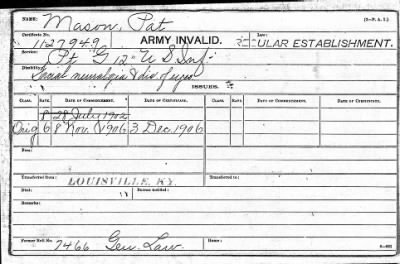 NAME: Mason, Pat (3-P. A. I.)
Certificate No. 1127949 ARMY INVALID. Law: REGULAR ESTABLISHMENT.
Service: Pt "G" 12" U S Inf.
Disability: Facial neuralgia & dis of eyes
ISSUES.
CLASS. RATE. DATE OF COMMENCEMENT. DATE OF CERTIFICATE. CLASS. RATE. DATE OF COMMENCEMENT. DATE OF CERTIFICATE.
8 28 July 1902
Orig 6 8 Nov. 1906 3 Dec. 1906
Fees:
Transferred from: LOUISVILLE, KY. Transferred to:
Died: Bureau notified:
Remarks:
Former Roll No. 7466 Gen. Law. Home: